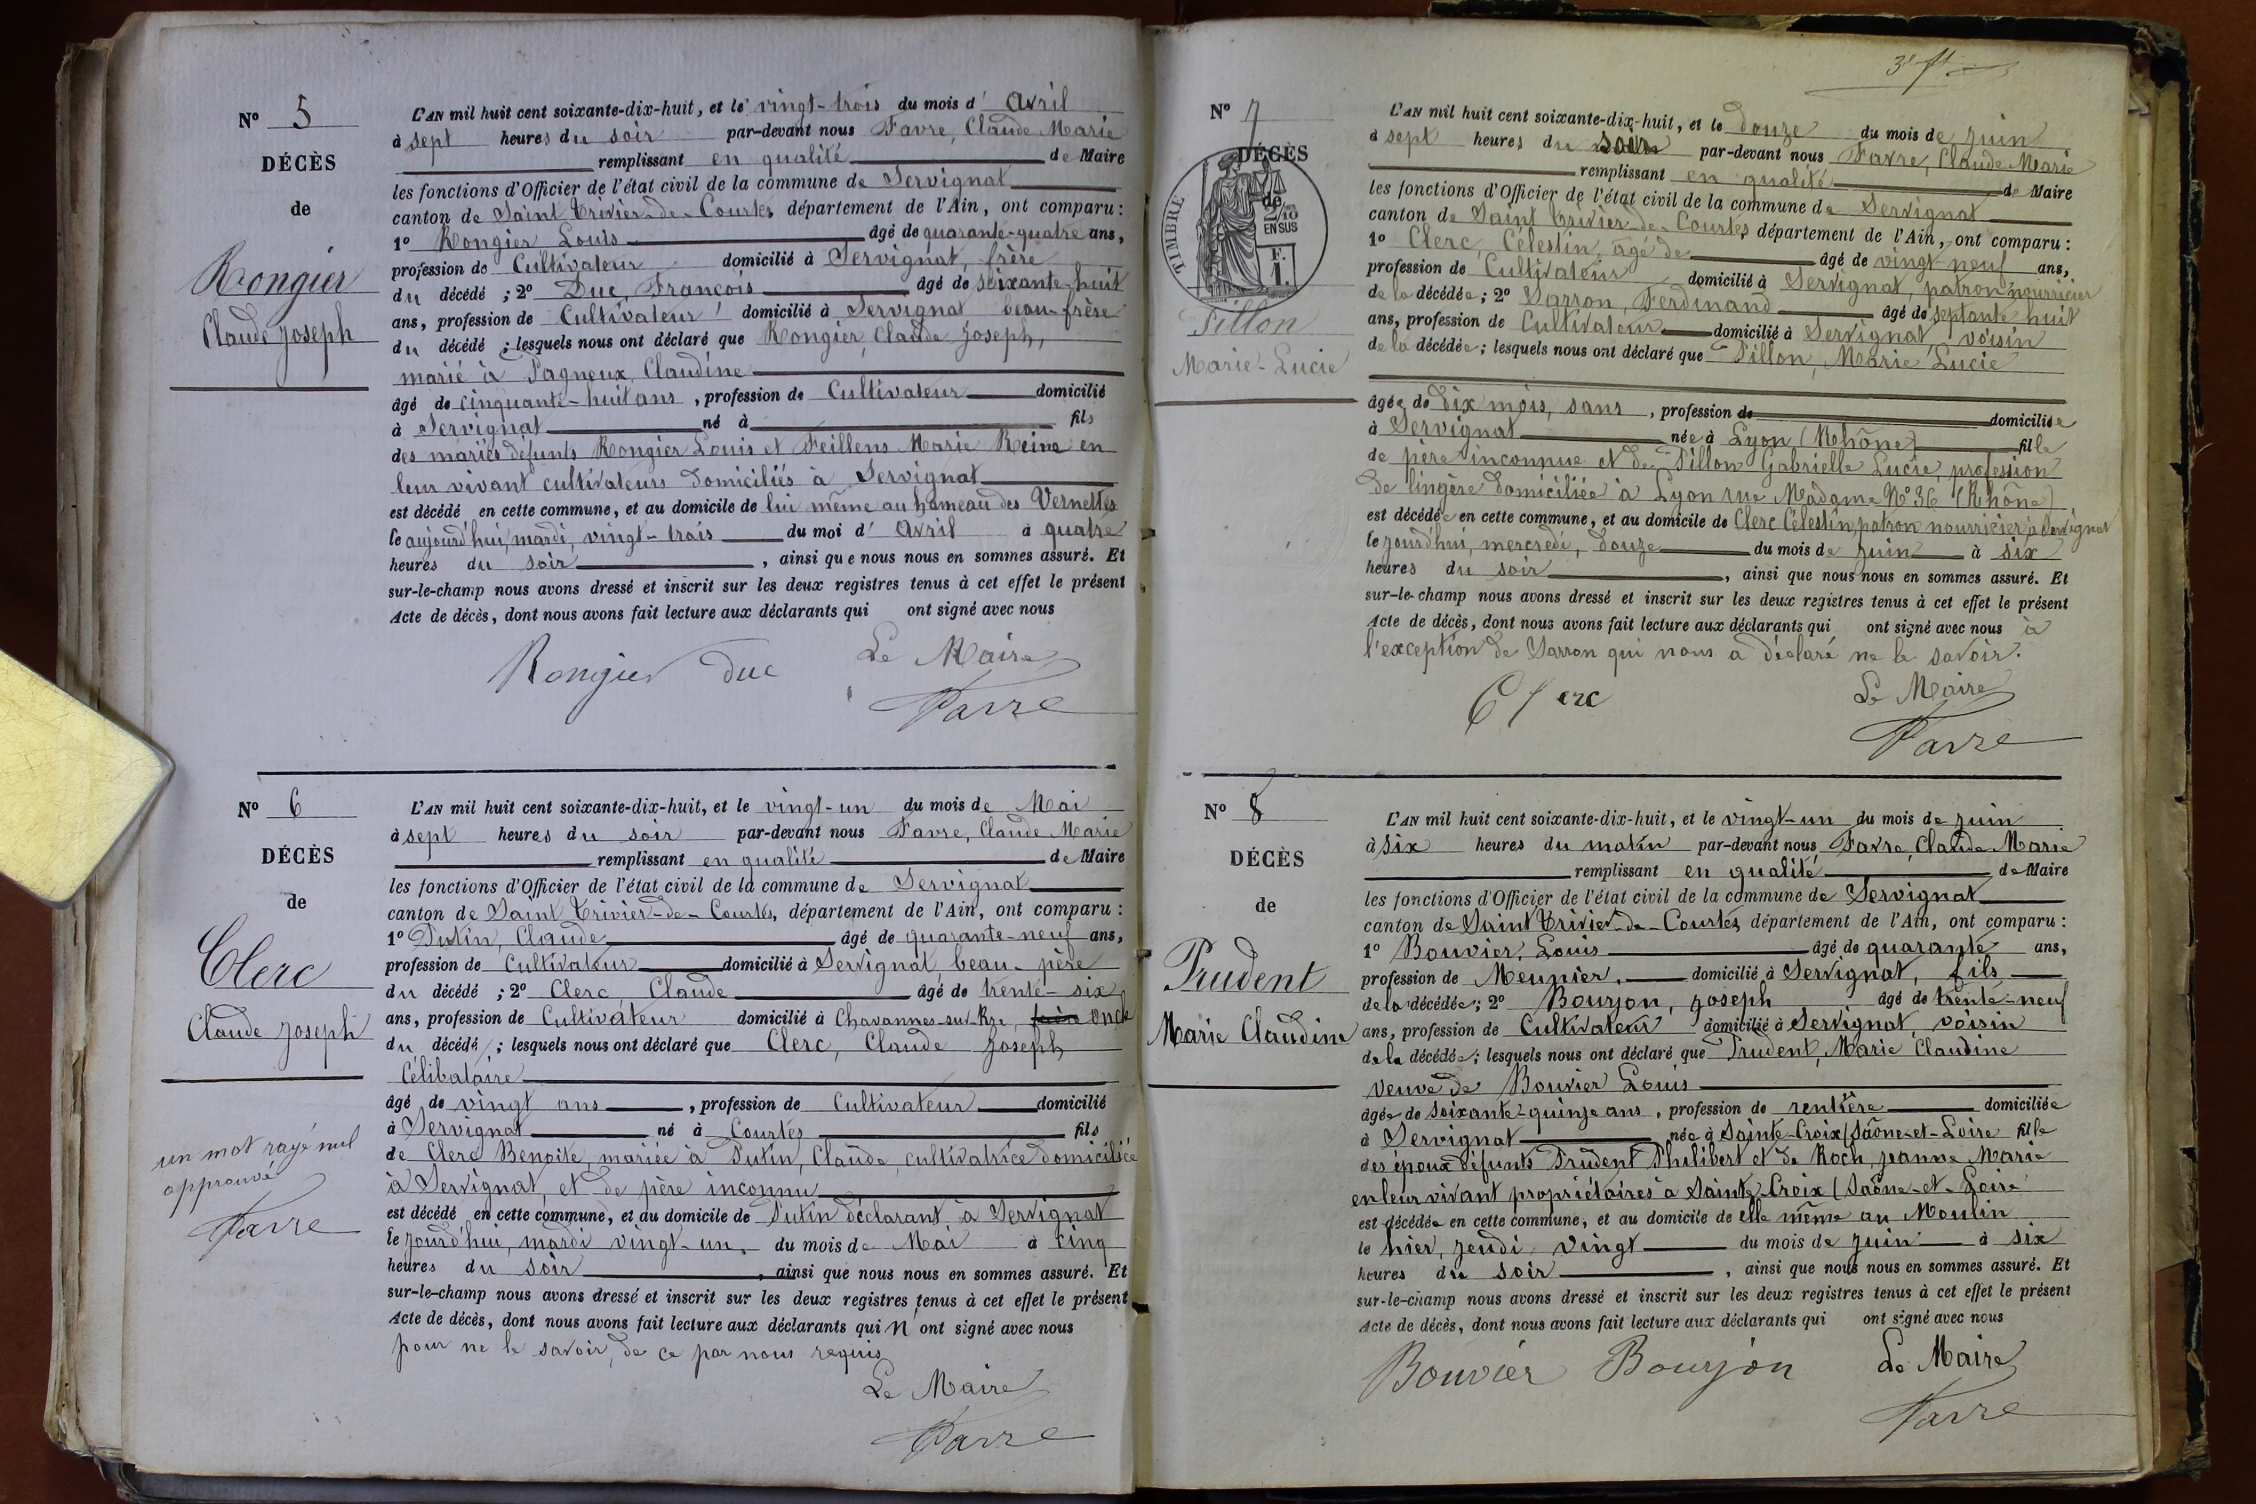 N° 5
DÉCÈS
de
Rongier
Claude Joseph
L'AN mil huit cent soixante-dix-huit, et le vingt-trois du mois d' Avril
à sept heures du soir par-devant nous Favre, Claude Marie
remplissant en qualité de Maire
les fonctions d'Officier de l'état civil de la commune de Servignat
canton de Saint Trivier-de-Courtes département de l'Ain, ont comparu :
1° Rongier Louis âgé de quarante-quatre ans,
profession de Cultivateur domicilié à Servignat, frère
du décédé ; 2° Duc, François âgé de soixante-huit
ans, profession de Cultivateur domicilié à Servignat, beau-frère
du décédé ; lesquels nous ont déclaré que Rongier, Claude Joseph,
marié à Pagneux, Claudine
âgé de cinquante-huit ans , profession de Cultivateur domicilié
à Servignat né à fils
des mariés défunts Rongier Louis et Feillens Marie Reine en
leur vivant cultivateurs domiciliés à Servignat
est décédé en cette commune, et au domicile de lui même au hameau des Vernettes
le aujourd'hui, mardi, vingt-trois du moi d' Avril à quatre
heures du soir , ainsi que nous nous en sommes assuré. Et
sur-le-champ nous avons dressé et inscrit sur les deux registres tenus à cet effet le présent
Acte de décès, dont nous avons fait lecture aux déclarants qui ont signé avec nous
Rongier Duc Le Maire
Favre
N° 6
DÉCÈS
de
Clerc
Claude Joseph
un mot rayé nul
approuvé
Favre
L'AN mil huit cent soixante-dix-huit, et le vingt-un du mois de Mai
à sept heures du soir par-devant nous Favre, Claude Marie
remplissant en qualité de Maire
les fonctions d'Officier de l'état civil de la commune de Servignat
canton de Saint Trivier-de-Courtes, département de l'Ain, ont comparu :
1° Putin, Claude âgé de quarante-neuf ans,
profession de Cultivateur domicilié à Servignat, beau-père
du décédé ; 2° Clerc, Claude âgé de trente-six
ans, profession de Cultivateur domicilié à Chavannes-sur-Rze, oncle
du décédé ; lesquels nous ont déclaré que Clerc, Claude Joseph
Célibataire
âgé de vingt ans , profession de Cultivateur domicilié
à Servignat né à Courtes fils
de Clerc Benoite mariée à Putin, Claude, cultivatrice domiciliée
à Servignat, et de père inconnu
est décédé en cette commune, et au domicile de Putin déclarant à Servignat
le jourd'hui, mardi vingt-un, du mois de Mai à cinq
heures du soir , ainsi que nous nous en sommes assuré. Et
sur-le-champ nous avons dressé et inscrit sur les deux registres tenus à cet effet le présent
Acte de décès, dont nous avons fait lecture aux déclarants qui n' ont signé avec nous
pour ne le savoir, de ce par nous requis
Le Maire
Favre
3e ft.
N° 7
DÉCÈS
de
TIMBRE
2/10 EN SUS
F. 1.
Pillon
Marie-Lucie
L'AN mil huit cent soixante-dix-huit, et le douze du mois de juin
à sept heures du soir par-devant nous Favre, Claude Marie
remplissant en qualité de Maire
les fonctions d'Officier de l'état civil de la commune de Servignat
canton de Saint Trivier-de-Courtes, département de l'Ain, ont comparu :
1° Clerc, Célestin, âgé de âgé de vingt-neuf ans,
profession de Cultivateur domicilié à Servignat, patron nourricier
de la décédée ; 2° Sarron, Ferdinand âgé de septante huit
ans, profession de Cultivateur domicilié à Servignat, voisin
de la décédée ; lesquels nous ont déclaré que Pillon, Marie Lucie
âgée de dix mois, sans , profession de domiciliée
à Servignat née à Lyon (Rhône) fille
de père inconnue et de Pillon Gabrielle Lucie, profession
de lingère domiciliée à Lyon rue Madame N° 36 (Rhône)
est décédée en cette commune, et au domicile de Clerc Célestin, patron nourricier à Servignat
le jourd'hui, mercredi, douze du mois de juin à six
heures du soir , ainsi que nous nous en sommes assuré. Et
sur-le-champ nous avons dressé et inscrit sur les deux registres tenus à cet effet le présent
Acte de décès, dont nous avons fait lecture aux déclarants qui ont signé avec nous à
l'exception de Sarron qui nous a déclaré ne le savoir.
Clerc Le Maire
Favre
N° 8
DÉCÈS
de
Prudent
Marie Claudine
L'AN mil huit cent soixante-dix-huit, et le vingt-un du mois de juin
à six heures du matin par-devant nous Favre, Claude Marie
remplissant en qualité de Maire
les fonctions d'Officier de l'état civil de la commune de Servignat
canton de Saint Trivier-de-Courtes, département de l'Ain, ont comparu :
1° Bouvier, Louis âgé de quarante ans,
profession de Meunier, domicilié à Servignat, fils
de la décédée ; 2° Bourjon, Joseph âgé de trente-neuf
ans, profession de Cultivateur domicilié à Servignat, voisin
de la décédée ; lesquels nous ont déclaré que Prudent, Marie Claudine
veuve de Bouvier Louis
âgée de soixante-quinze ans , profession de rentière domiciliée
à Servignat née à Sainte-Croix (Saône-et-Loire fille
des époux défunts Prudent Philibert et de Roch, Jeanne Marie
en leur vivant propriétaires à Sainte Croix (Saône-et-Loire
est décédée en cette commune, et au domicile de elle même au Moulin
le hier, jeudi, vingt du mois de juin à six
heures du soir , ainsi que nous nous en sommes assuré. Et
sur-le-champ nous avons dressé et inscrit sur les deux registres tenus à cet effet le présent
Acte de décès, dont nous avons fait lecture aux déclarants qui ont signé avec nous
Bouvier Bourjon Le Maire
Favre